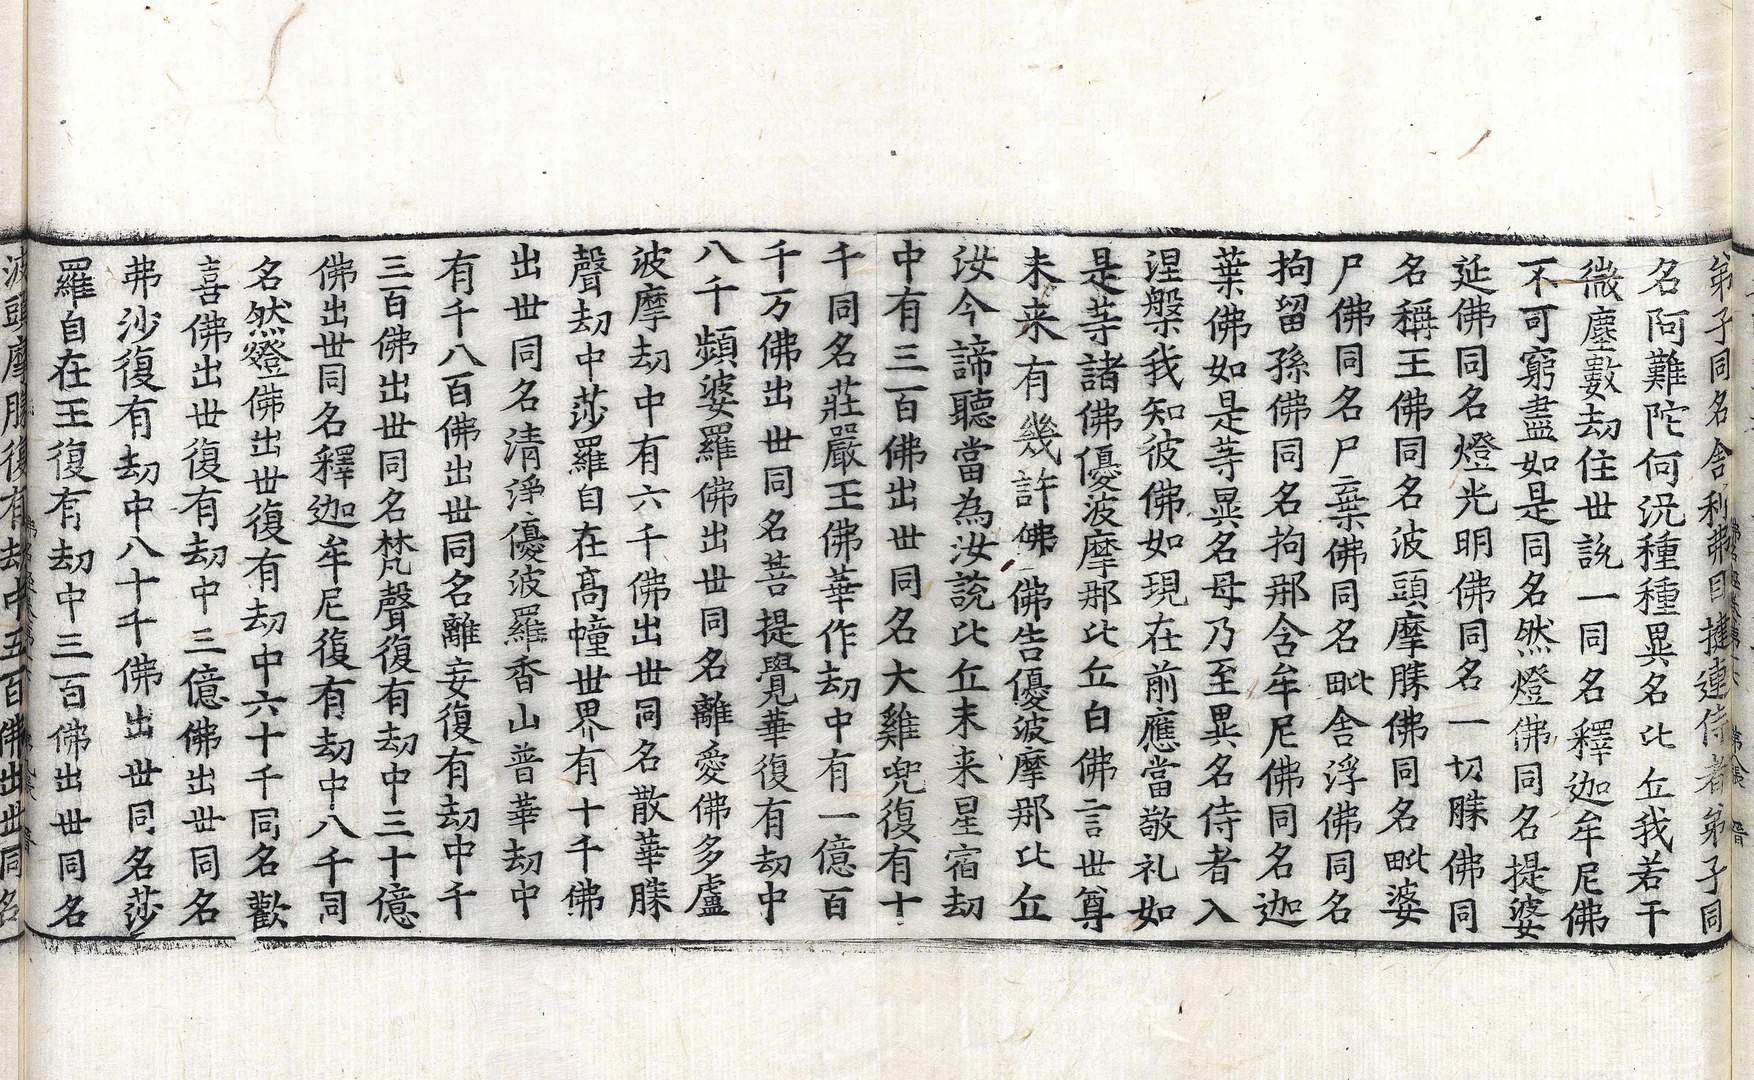 弟子同名舍利弗目揵連侍者弟子同
名阿難陀何況種種異名比丘我若干
微塵數劫住世說一同名釋迦牟尼佛
不可窮盡如是同名然燈佛同名提婆
延佛同名燈光明佛同名一切勝佛同
名稱王佛同名波頭摩勝佛同名毗婆
尸佛同名尸棄佛同名毗舍浮佛同名
拘留孫佛同名拘那含牟尼佛同名迦
葉佛如是等異名母乃至異名侍者入
涅槃我知彼佛如現在前應當敬礼如
是等諸佛優波摩那比丘白佛言世尊
未来有幾許佛佛告優波摩那比丘
汝今諦聽當為汝說比丘未来星宿劫
中有三百佛出世同名大雞兜復有十
千同名莊嚴王佛華作劫中有一億百
千万佛出世同名菩提覺華復有劫中
八千頻婆羅佛出世同名離愛佛多盧
波摩劫中有六千佛出世同名散華勝
聲劫中莎羅自在高幢世界有十千佛
出世同名清淨優波羅香山普華劫中
有千八百佛出世同名離妄復有劫中千
三百佛出世同名梵聲復有劫中三十億
佛出世同名釋迦牟尼復有劫中八千同
名然燈佛出世復有劫中六十千同名歡
喜佛出世復有劫中三億佛出世同名
弗沙復有劫中八十千佛出世同名莎
羅自在王復有劫中三百佛出世同名
波頭摩勝復有劫中五百佛出世同名